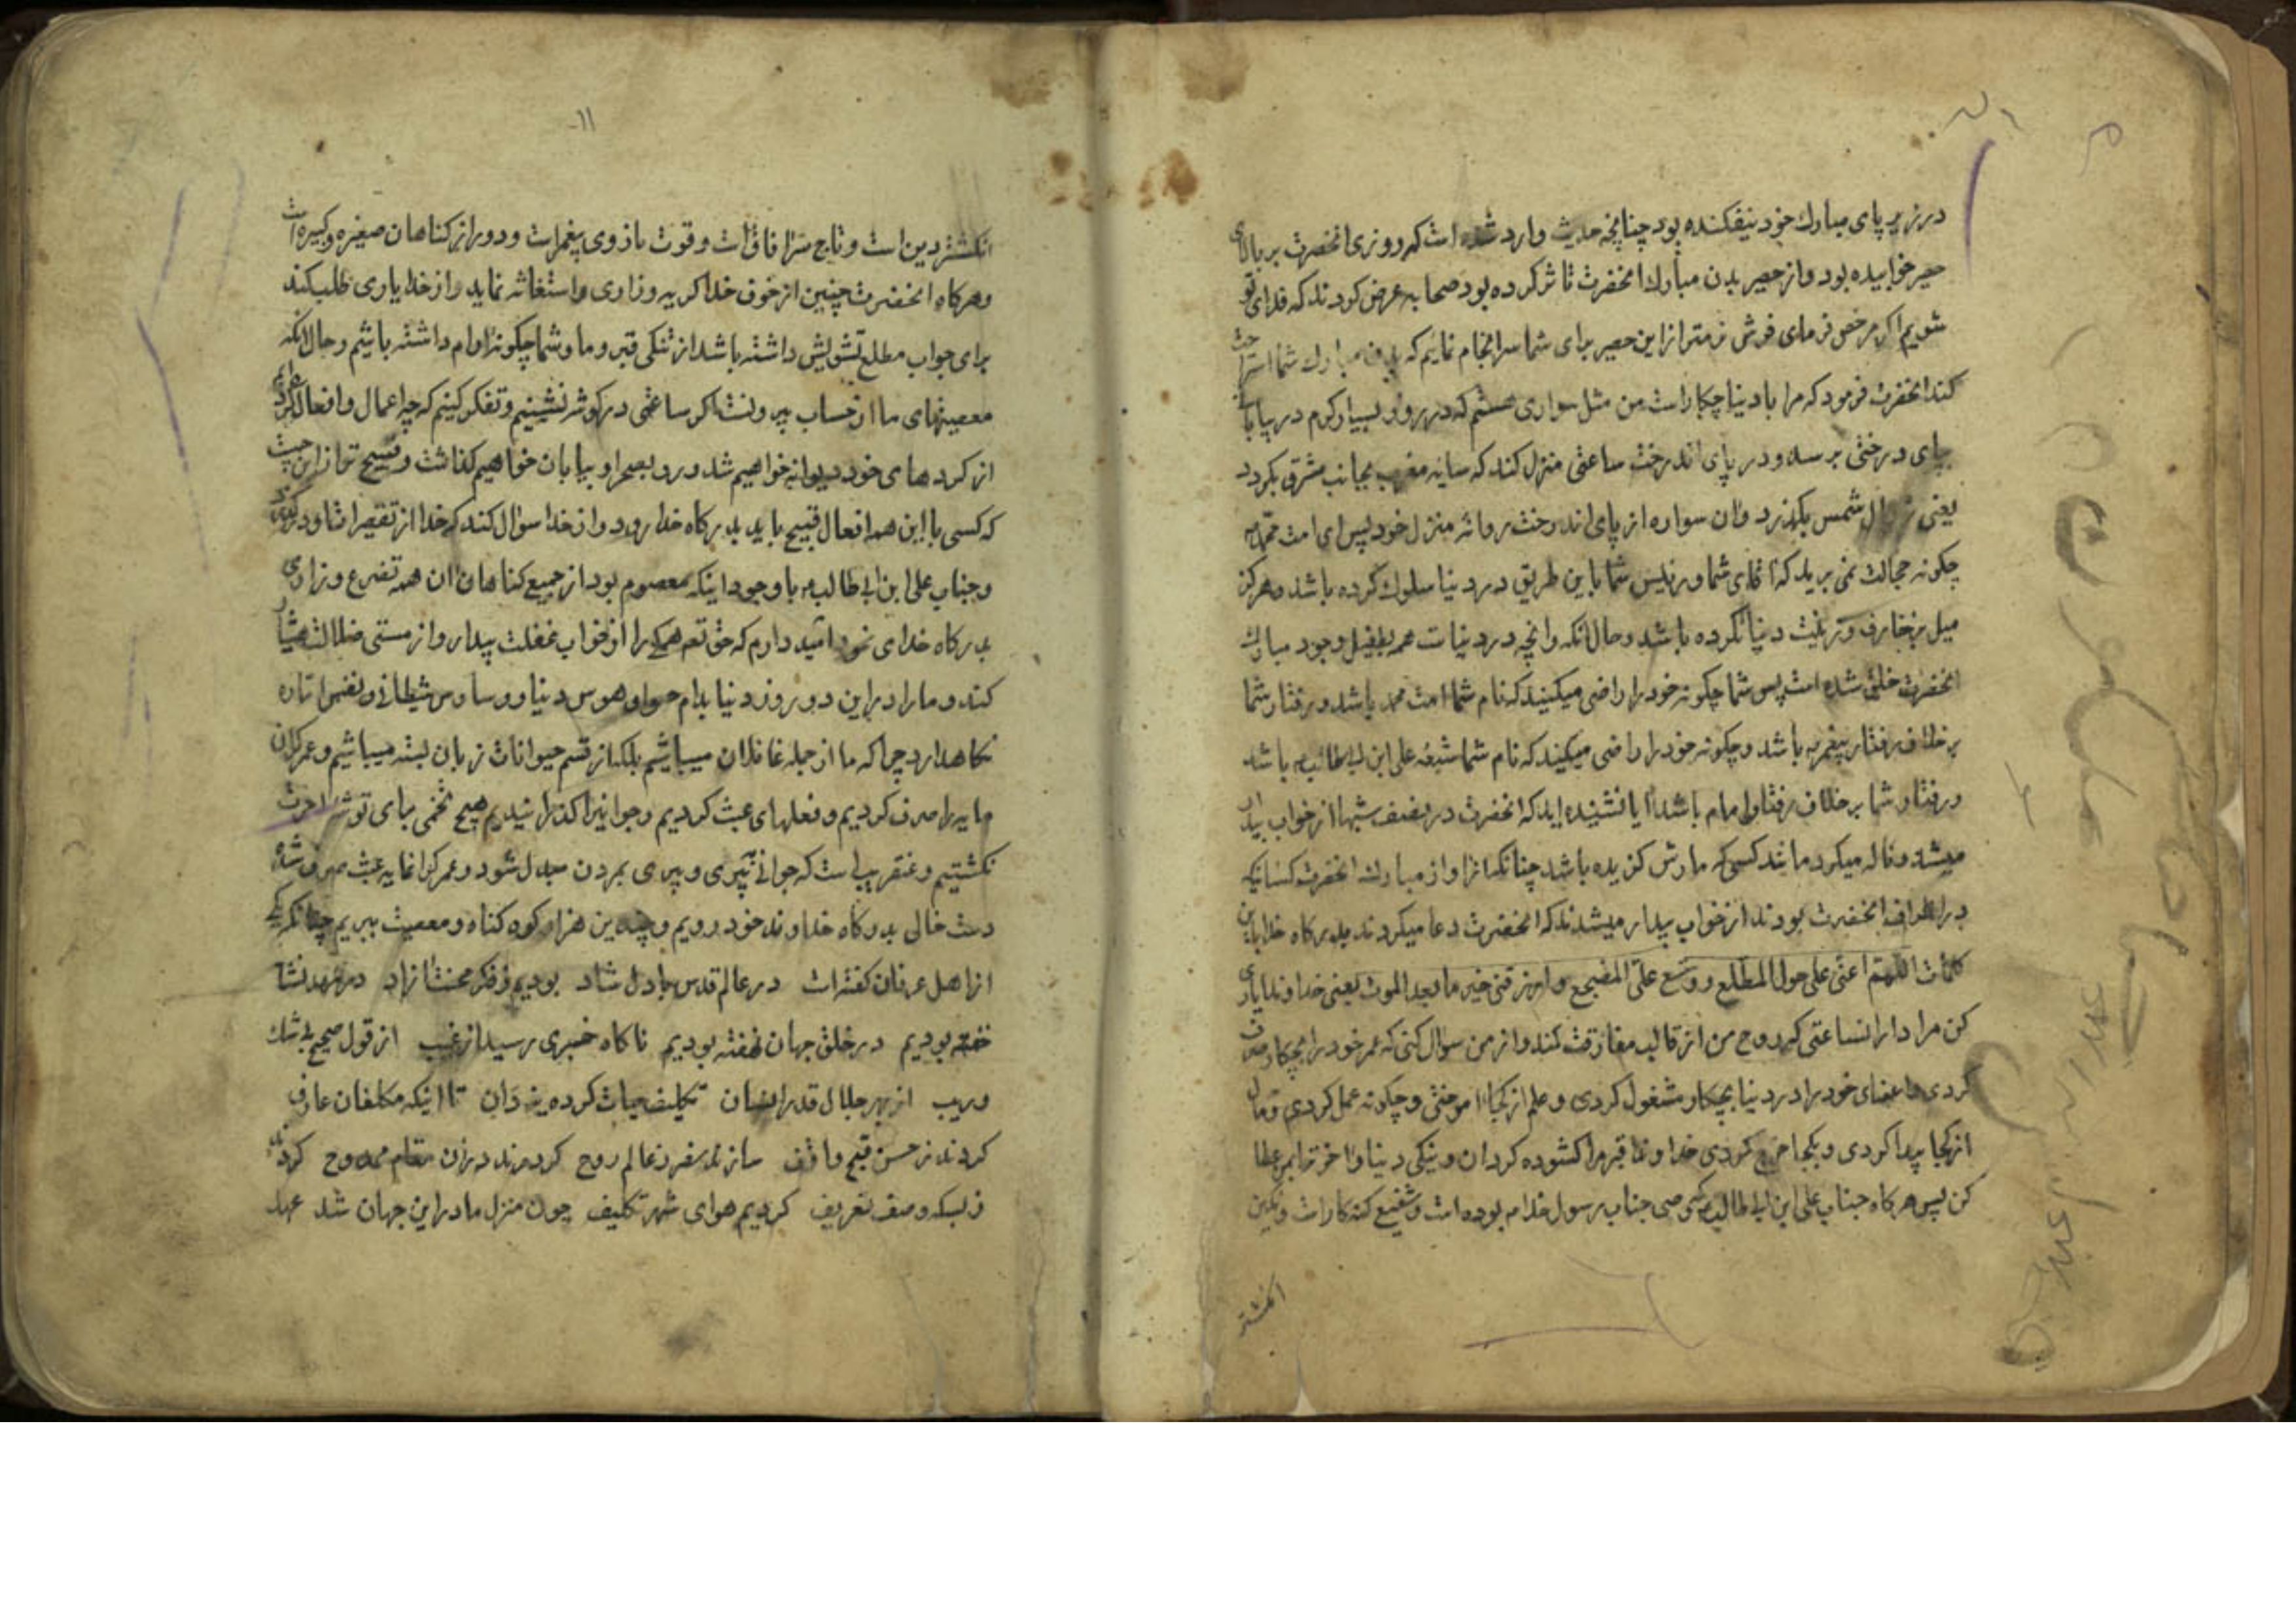 در زیر پای مبارك خود نیفكنده بود چنانچه حدیث وارد شده است كه روزی انحضرت بر بالای
حصیر خوابیده بود و از حصیر بدن مبارك انحضرت تاثر كرده بود صحابه عرض كردند كه فدای تو
شویم اكر مرخص فرمای فرش نرمتر از این حصیر برای شما سرانجام نمایم كه بدن مبارك شما استراحت
كند انحضرت فرمود كه مرا با دنیا چكار است من مثل سواری هستم كه در روز بسیار كرم در بیابان
بپای درختی برسد و در پای اندرخت ساعتی منزل كند كه سایه مغرب بجانب مشرق بكردد
یعنی زوال شمس بكذرد وان سواره از پای اندرخت روانه منزل خود پس ای امت محمد
چكونه خجالت نمی برید كه اقای شما و رئیس شما باین طریق در دنیا سلوك كرده باشد و هركز
میل بزخارف و زینت دنیا نكرده باشد و حال انكه وانچه در دنیاست همه بطفیل وجود مبارك
انحضرت خلق شده است پس شما چكونه خود را راضی میكنید كه نام شما امت محمد باشد و رفتار شما
بر خلاف رفتار پیغمبر باشد و چكونه خود را راضی میكنید كه نام شما شیعه علی ابن ابی طالب باشد
و رفتار شما بر خلاف رفتار امام باشد ایا نشنیده اید كه انحضرت در نصف شبها از خواب بیدار
میشد و ناله میكرد مانند كسی كه مارش كزیده باشد چنانكه از اواز مبارك انحضرت كسانیكه
در اطراف انحضرت بودند از خواب بیدار میشدند كه انحضرت دعا میكردند بدركاه خدا باین
كلمات اللهم اعنی علی هول المطلع و وسع علی المضجع و ارزقنی خیر ما بعد الموت یعنی خداوندا یاری
كن مرا در ان ساعتی كه روح من از قالب مفارقت كند و از من سوال كنی كه عمر خود را بچكار صرف
كردی و اعضای خود را در دنیا بچكار مشغول كردی و علم از كجا اموختی و چكونه عمل كردی و مال
از كجا پیدا كردی و بكجا خرج كردی خداوندا قبر مرا كشوده كردان و نیكی دنیا و اخرت بمن عطا
كن پس هركاه جناب علی ابن ابی طالب كه وصی جناب رسول خدا بوده است و شفیع كنه كار است و نكین
انكشتر
۱۱
انكشتر دین است و تاج سر افاق است و قوت بازوی پیغمبر است و دور از كناهان صغیره و كبیره است
و هركاه انحضرت چنین از خوف خدا كریه و زاری و استغاثه نماید و از خدا یاری طلب كند
برای جواب مطلع تشویش داشته باشد از تنكی قبر و ما و شما چكونه ارام داشته باشیم و حال انكه
معصیتهای ما از حساب بیرونست اكر ساعتی در كوشه نشینیم و تفكر كنیم كه چه اعمال و افعال كرده ایم
از كردهای خود دیوانه خواهیم شد و رو بصحرا و بیابان خواهیم كذاشت و قبیح تر از این چیست
كه كسی با این همه افعال قبیح باید بدركاه خدا رود و از خدا سوال كند كه خدا از تقصیرات او درگذرد
و جناب علی ابن ابی طالب با وجود اینكه معصوم بود از جمیع كناهان ان همه تضرع و زاری
بدركاه خدای نمود امید دارم كه حق تع همكی را از خواب غفلت بیدار و از مستی ضلالت هشیار
كند و ما را در این دو روز دنیا بدام هوا و هوس دنیا و وساوس شیطانی و نفس اماره
نكاهدارد چرا كه ما از جمله غافلان میباشیم بلكه از قسم حیوانات زبان بسته میباشیم و عمر كران
مایه را صرف كردیم و فعلهای عبث كردیم و جوانیرا كذرانیدیم هیچ تخمی برای توشه اخرت
نكشتیم و عنقریب است كه جوانی بپیری و پیری بمردن مبدل شود و عمر كرانمایه عبث صرف شده
دست خالی بدركاه خداوند خود رویم و چندین هزار كوه كناه و معصیت ببریم چنانكه یكی
از اهل عرفان كفته است در عالم قدس با دل شاد بودیم ز فكر محنت ازاد در مهد نشاط
خفته بودیم در خلق جهان نهفته بودیم ناكاه خبری رسید از غیب از قول صحیح بی شك
و ریب از بهر جلال قدر انسان تكلیف حیات كرده یزدان تا اینكه مكلفان عارف
كردند ز حسن و قبح واقف سازند سفر ز عالم روح كردند در ان مقام ممدوح كردند
ز بسكه وصف تعریف كردیم هوای شهر تكلیف چون منزل ما در این جهان شد عهد